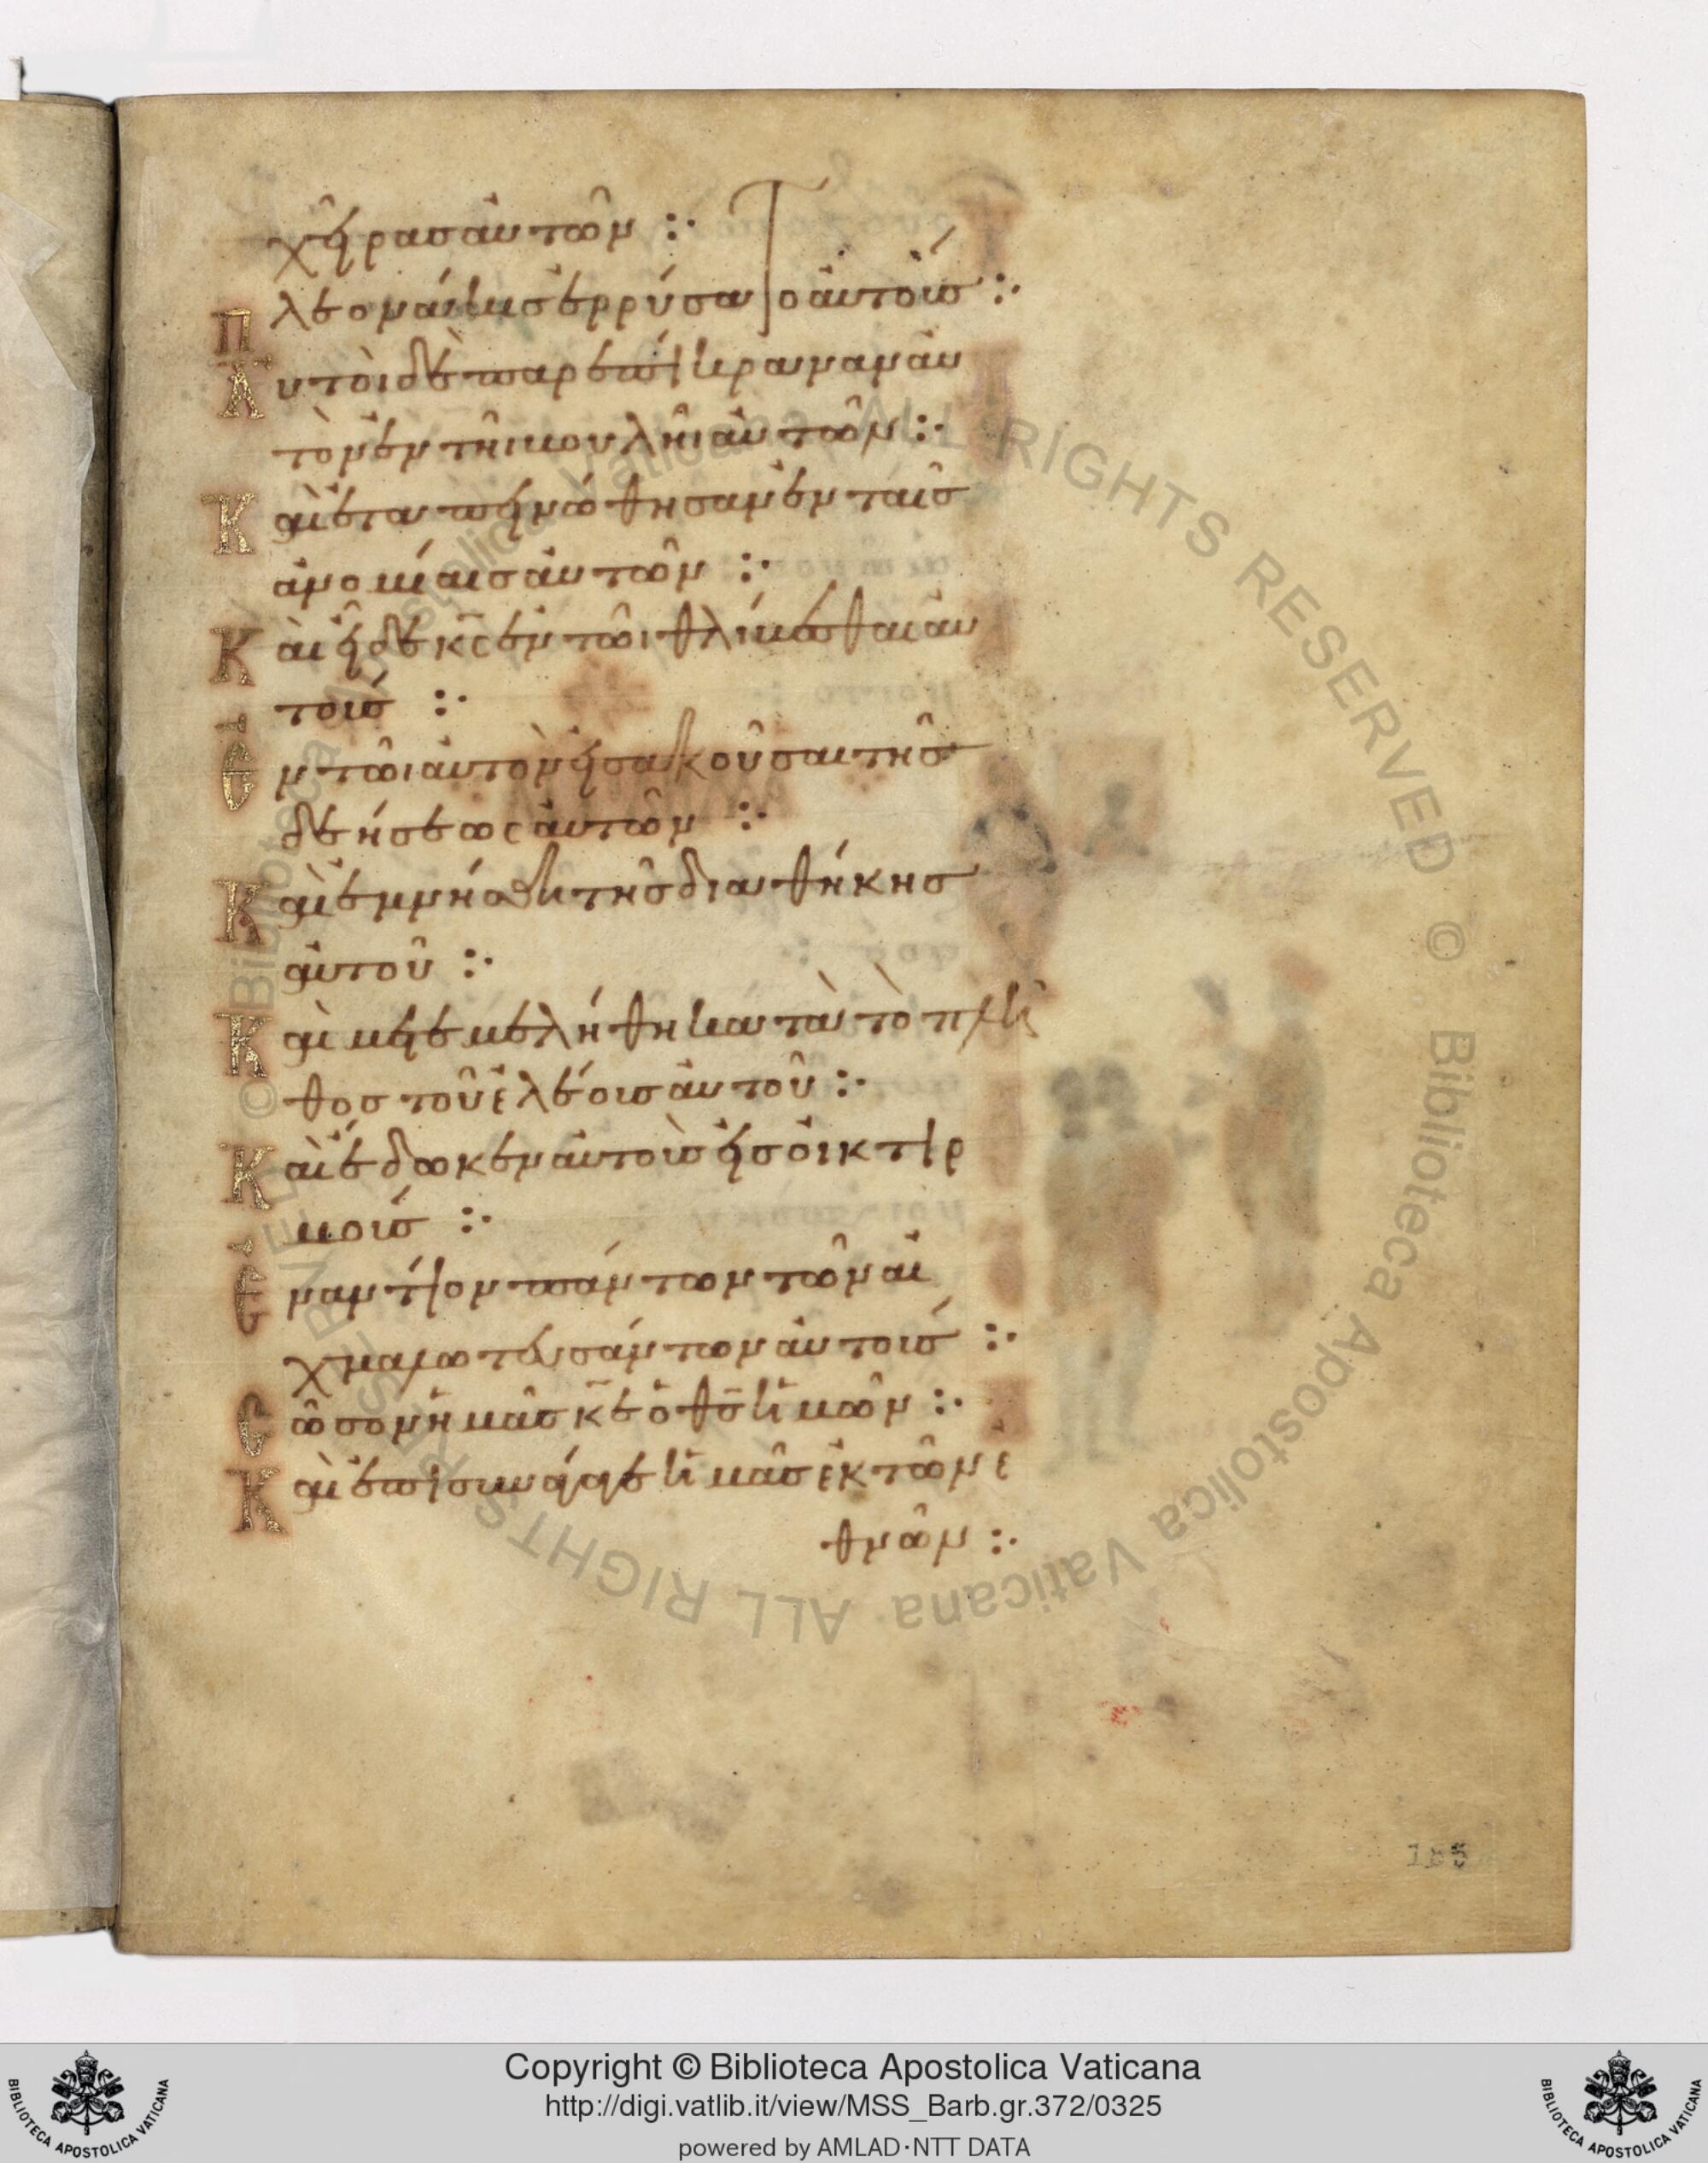 χεῖρας αὐτῶν :·
Πλεονάκις ἐρρύσατο αὐτούς :·
Αὐτοὶ δὲ παρεπίκραναν αὐ
τὸν ἐν τῆι βουλῆι αὐτῶν :·
Καὶ ἐταπεινώθησαν ἐν ταῖς
ἀνομίαις αὐτῶν :·
Καὶ εἶδε κς ἐν τῶι θλίβεσθαι αὐ
τούς :·
Ἐν τῶι αὐτὸν εἰσακοῦσαι τῆς
δεήσεως αὐτῶν :·
Καὶ ἐμνήσθη τῆς διαθήκης
αὐτοῦ :·
Καὶ μετεμελήθη κατὰ τὸ πλῆ
θος τοῦ ἐλέους αὐτοῦ :·
Καὶ ἔδωκεν αὐτοὺς εἰς οἰκτιρ
μούς :·
Ἐναντίον πάντων τῶν αἰ
χμαλωτευσάντων αὐτούς :·
Σῶσον ἡμᾶς κε ὁ θς ἡμῶν :·
Καὶ ἐπισυνάγαγε ἡμᾶς ἐκ τῶν ἐ
θνῶν :·
165
© Biblioteca Apostolica Vaticana ALL RIGHTS RESERVED © Biblioteca Apostolica Vaticana ALL RIGHTS RESERVED
Copyright © Biblioteca Apostolica Vaticana
http://digi.vatlib.it/view/MSS_Barb.gr.372/0325
powered by AMLAD·NTT DATA
BIBLIOTECA APOSTOLICA VATICANA
BIBLIOTECA APOSTOLICA VATICANA